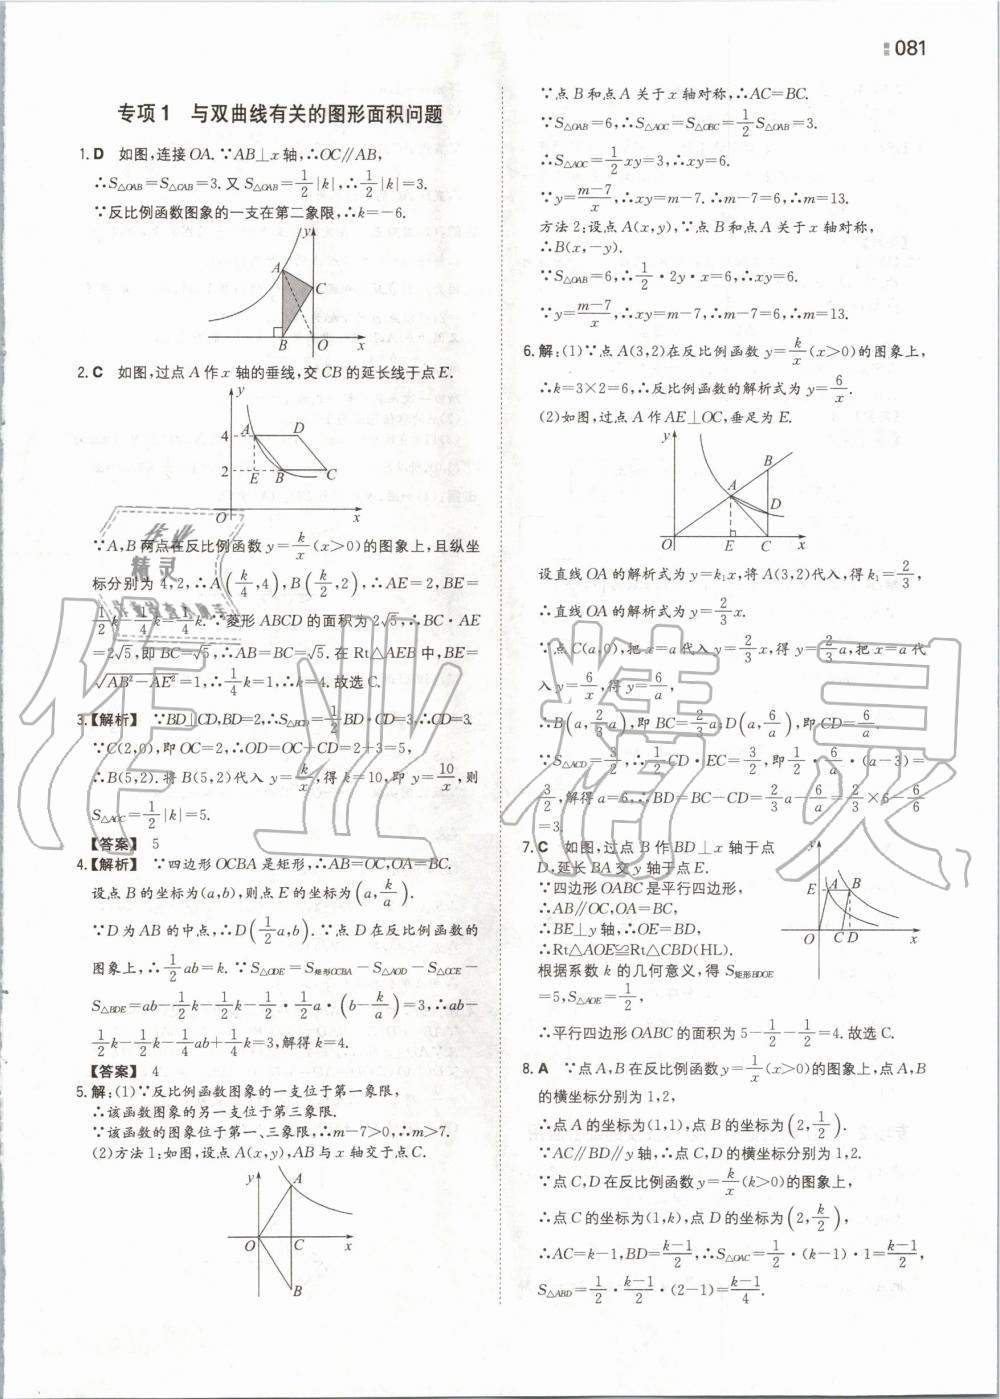 答案 081
专项1 与双曲线有关的图形面积问题
1. D 如图,连接OA.∵AB⊥x轴,∴OC∥AB,
∴S△OAB=S△CAB=3.又S△OAB=1/2|k|,∴1/2|k|=3.
∵反比例函数图象的一支在第二象限,∴k=-6.
y
A
C
B O x
2. C 如图,过点A作x轴的垂线,交CB的延长线于点E.
y
4 A D
2 E B C
O x
∵A,B两点在反比例函数y=k/x(x>0)的图象上,且纵坐
标分别为4,2,∴A(k/4,4),B(k/2,2),∴AE=2,BE=
1/2k-1/4k=1/4k.∵菱形ABCD的面积为2√5,∴BC·AE
=2√5,即BC=√5,∴AB=BC=√5.在Rt△AEB中,BE=
√(AB²-AE²)=1,∴1/4k=1,∴k=4.故选C.
3.【解析】 ∵BD⊥CD,BD=2,∴S△BCD=1/2BD·CD=3,∴CD=3.
∵C(2,0),即OC=2,∴OD=OC+CD=2+3=5,
∴B(5,2).将B(5,2)代入y=k/x,得k=10,即y=10/x,则
S△AOC=1/2|k|=5.
【答案】 5
4.【解析】 ∵四边形OCBA是矩形,∴AB=OC,OA=BC.
设点B的坐标为(a,b),则点E的坐标为(a,k/a).
∵D为AB的中点,∴D(1/2a,b).∵点D在反比例函数的
图象上,∴1/2ab=k.∵S△ODE=S矩形OCBA-S△AOD-S△OCE-
S△BDE=ab-1/2k-1/2k-1/2·1/2a·(b-k/a)=3,∴ab-
1/2k-1/2k-1/4ab+1/4k=3,解得k=4.
【答案】 4
5. 解:(1)∵反比例函数图象的一支位于第一象限,
∴该函数图象的另一支位于第三象限.
∵该函数的图象位于第一、三象限,∴m-7>0,∴m>7.
(2)方法1:如图,设点A(x,y),AB与x轴交于点C.
y
A
O C x
B
∵点B和点A关于x轴对称,∴AC=BC.
∵S△OAB=6,∴S△AOC=S△OBC=1/2S△OAB=3.
∴S△AOC=1/2xy=3,∴xy=6.
∵y=(m-7)/x,∴xy=m-7.∴m-7=6,∴m=13.
方法2:设点A(x,y),∵点B和点A关于x轴对称,
∴B(x,-y).
∵S△OAB=6,∴1/2·2y·x=6,∴xy=6.
∵y=(m-7)/x,∴xy=m-7,∴m-7=6,∴m=13.
6. 解:(1)∵点A(3,2)在反比例函数y=k/x(x>0)的图象上,
∴k=3×2=6,∴反比例函数的解析式为y=6/x.
(2)如图,过点A作AE⊥OC,垂足为E.
y
B
A
D
O E C x
设直线OA的解析式为y=k₁x,将A(3,2)代入,得k₁=2/3,
∴直线OA的解析式为y=2/3x.
∵点C(a,0),把x=a代入y=2/3x,得y=2/3a,把x=a代
入y=6/x,得y=6/a,
∴B(a,2/3a),即BC=2/3a;D(a,6/a),即CD=6/a.
∵S△ACD=3/2,∴1/2CD·EC=3/2,即1/2·6/a·(a-3)=
3/2,解得a=6,∴BD=BC-CD=2/3a-6/a=2/3×6-6/6
=3.
7. C 如图,过点B作BD⊥x轴于点
D,延长BA交y轴于点E.
∵四边形OABC是平行四边形,
∴AB∥OC,OA=BC,
∴BE⊥y轴,∴OE=BD,
∴Rt△AOE≌Rt△CBD(HL).
根据系数k的几何意义,得S矩形BDOE
=5,S△AOE=1/2,
y
E A B
O C D x
∴平行四边形OABC的面积为5-1/2-1/2=4.故选C.
8. A ∵点A,B在反比例函数y=1/x(x>0)的图象上,点A,B
的横坐标分别为1,2,
∴点A的坐标为(1,1),点B的坐标为(2,1/2).
∵AC∥BD∥y轴,∴点C,D的横坐标分别为1,2.
∵点C,D在反比例函数y=k/x(k>0)的图象上,
∴点C的坐标为(1,k),点D的坐标为(2,k/2),
∴AC=k-1,BD=(k-1)/2,∴S△OAC=1/2·(k-1)·1=(k-1)/2,
S△ABD=1/2·(k-1)/2·(2-1)=(k-1)/4.
作业
精灵
作业精灵